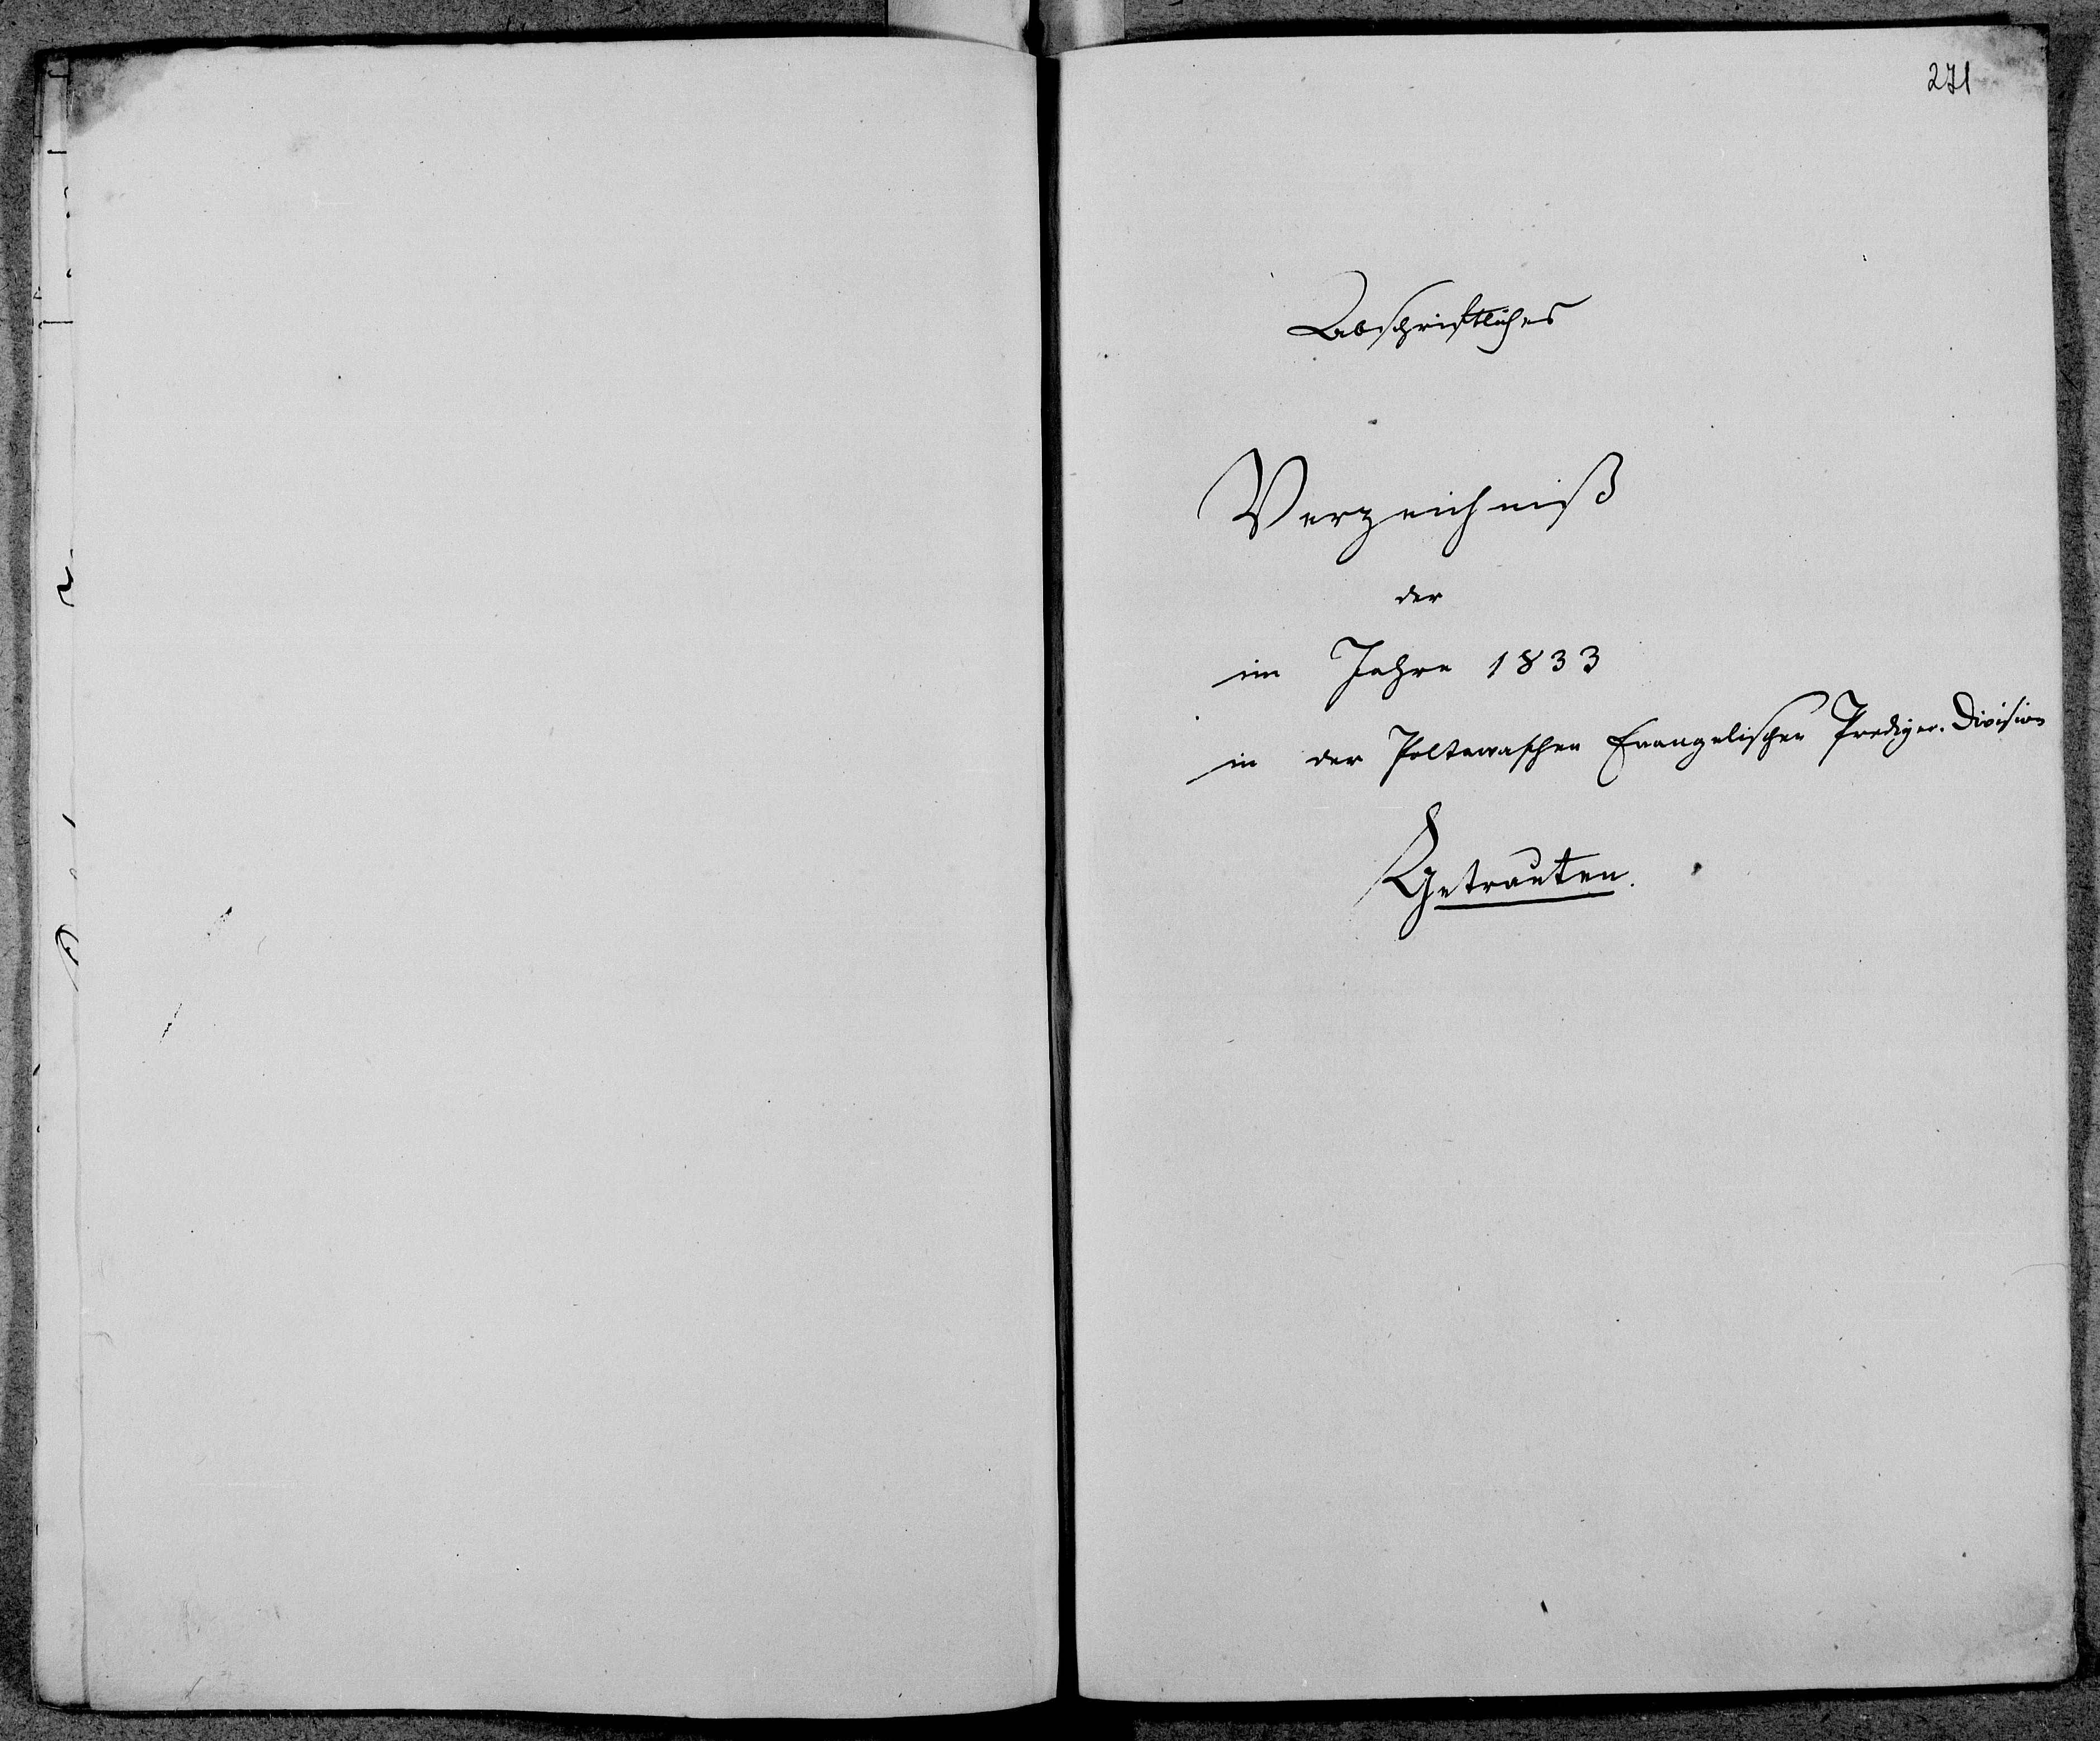 271
Abschriftliches
Verzeichniß
der
im Jahre 1833
in der Poltawaschen Evangelischen Prediger-Division
Getrauten.